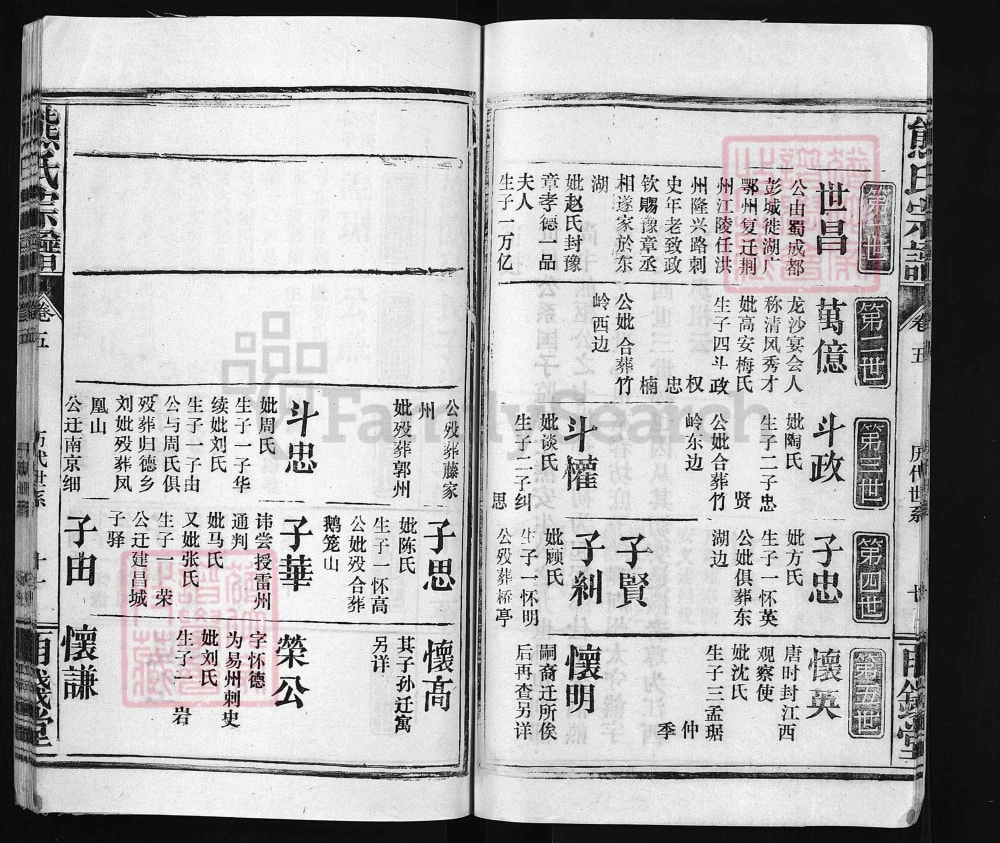 熊氏宗譜
卷五
历代世系
十
百錢堂
第一世
世昌
公由蜀成都
彭城徙湖广
鄂州复迁荆
州江陵任洪
州隆兴路刺
史年老致政
钦赐豫章丞
相遂家於东
湖
妣赵氏封豫
章孝德一品
夫人
生子一万亿
第二世
萬億
龙沙宴会人
称清风秀才
妣高安梅氏
生子四斗政
权
忠
楠
公妣合葬竹
岭西边
第三世
斗政
妣陶氏
生子二子忠
贤
公妣合葬竹
岭东边
斗權
妣谈氏
生子二子纠
思
第四世
子忠
妣方氏
生子一怀英
公妣俱葬东
湖边
子賢
子糾
妣顾氏
生子一怀明
公殁葬桥亭
第五世
懷英
唐时封江西
观察使
妣沈氏
生子三孟琚
仲
季
懷明
嗣裔迁所俟
后再查另详
公殁葬藤家
州
妣殁葬郭州
斗忠
妣周氏
生子一子华
续妣刘氏
生子一子由
公与周氏俱
殁葬归德乡
刘妣殁葬凤
凰山
公迁南京细
子思
妣陈氏
生子一怀高
公妣殁合葬
鹅笼山
子華
讳尝授雷州
通判
妣马氏
又妣张氏
生子一荣
公迁建昌城
子驿
子由
懷高
其子孙迁寓
另详
榮公
字怀德
为易州刺史
妣刘氏
生子一岩
懷謙
熊氏宗譜
卷五
历代世系
十一
百錢堂
FamilySearch